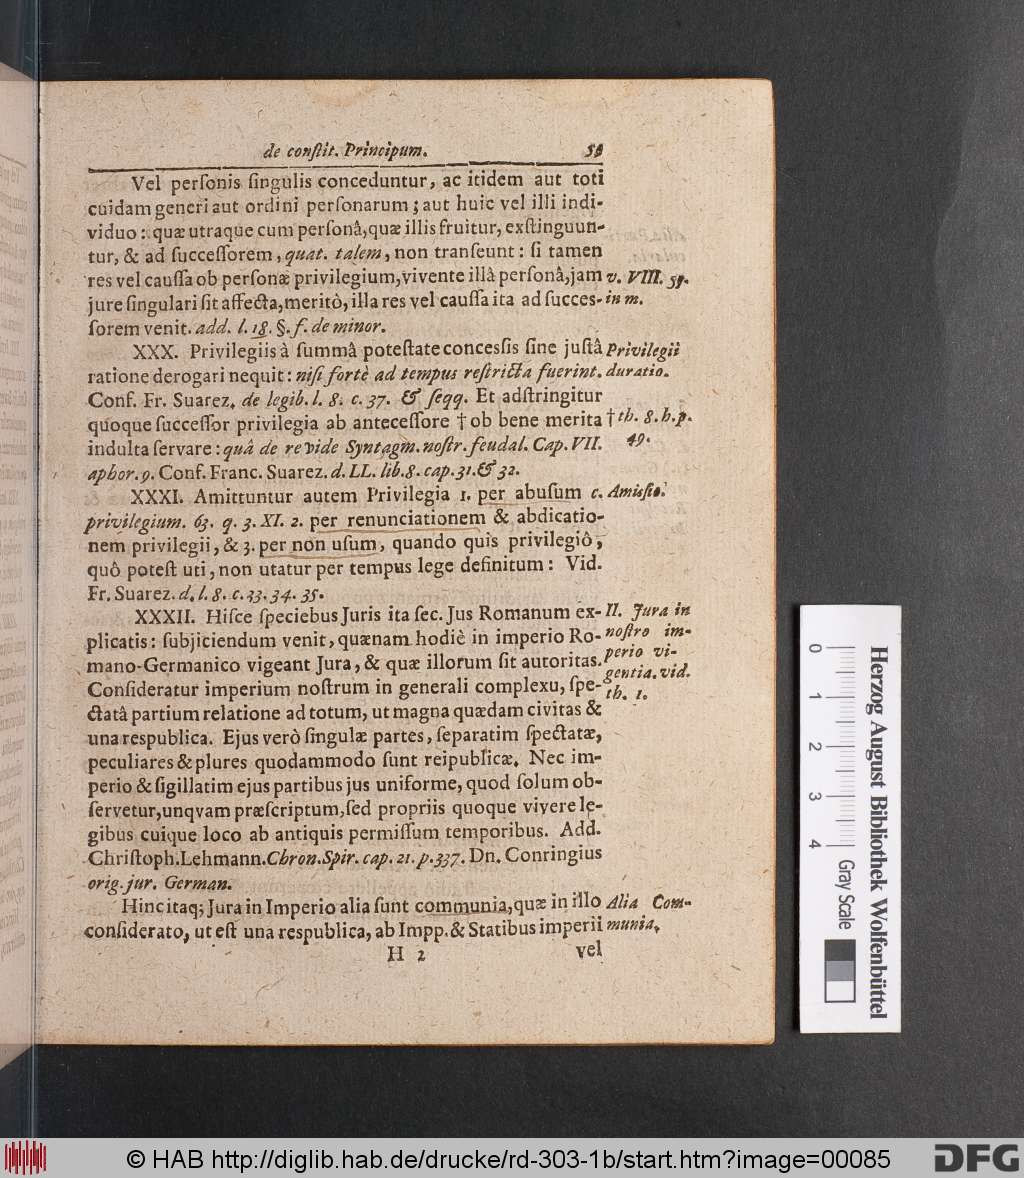 de conſtit. Principum.
Vel perſonis ſingulis conceduntur, ac itidem aut toti
cuidam generi aut ordini perſonarum; aut huic vel illi indi-
viduo: quæ utraque cum perſonâ, quæ illis fruitur, exſtinguun-
tur, & ad ſucceſſorem, quat. talem, non tranſeunt: ſi tamen
res vel cauſſa ob perſonæ privilegium, vivente illâ perſonâ, jam
jure ſingulari ſit affecta, meritò, illa res vel cauſſa ita ad ſucceſ-
ſorem venit. add. l. 18. §. f. de minor.
v. VIII. 59.
in m.
XXX. Privilegiis à ſummâ poteſtate conceſsis ſine juſtâ
ratione derogari nequit: niſi fortè ad tempus reſtricta fuerint.
Conf. Fr. Suarez. de legib. l. 8. c. 37. & ſeqq. Et adſtringitur
quoque ſucceſſor privilegia ab anteceſſore † ob bene merita
indulta ſervare: quâ de re vide Syntagm. noſtr. feudal. Cap. VII.
aphor. 9. Conf. Franc. Suarez. d. LL. lib. 8. cap. 31. & 32.
Privilegii
duratio.
† th. 8. h. p.
49.
XXXI. Amittuntur autem Privilegia 1. per abuſum c.
privilegium. 63. q. 3. XI. 2. per renunciationem & abdicatio-
nem privilegii, & 3. per non uſum, quando quis privilegiô,
quô poteſt uti, non utatur per tempus lege definitum: Vid.
Fr. Suarez. d. l. 8. c. 33. 34. 35.
Amiſſio.
XXXII. Hiſce ſpeciebus Juris ita ſec. Jus Romanum ex-
plicatis: ſubjiciendum venit, quænam hodiè in imperio Ro-
mano-Germanico vigeant Jura, & quæ illorum ſit autoritas.
Conſideratur imperium noſtrum in generali complexu, ſpe-
ctatâ partium relatione ad totum, ut magna quædam civitas &
una respublica. Ejus verò ſingulæ partes, ſeparatim ſpectatæ,
peculiares & plures quodammodo ſunt reipublicæ. Nec im-
perio & ſigillatim ejus partibus jus uniforme, quod ſolum ob-
ſervetur, unqvam præſcriptum, ſed propriis quoque vivere le-
gibus cuique loco ab antiquis permiſſum temporibus. Add.
Chriſtoph. Lehmann. Chron. Spir. cap. 21. p. 337. Dn. Conringius
orig. jur. German.
II. Jura in
noſtro im-
perio vi-
gentia. vid.
th. 1.
Hinc itaq; Jura in Imperio alia ſunt communia, quæ in illo
conſiderato, ut eſt una respublica, ab Impp. & Statibus imperii
Alia Com-
munia.
H 2
vel
0 1 2 3 4
Gray Scale
Herzog August Bibliothek Wolfenbüttel
© HAB http://diglib.hab.de/drucke/rd-303-1b/start.htm?image=00085
DFG